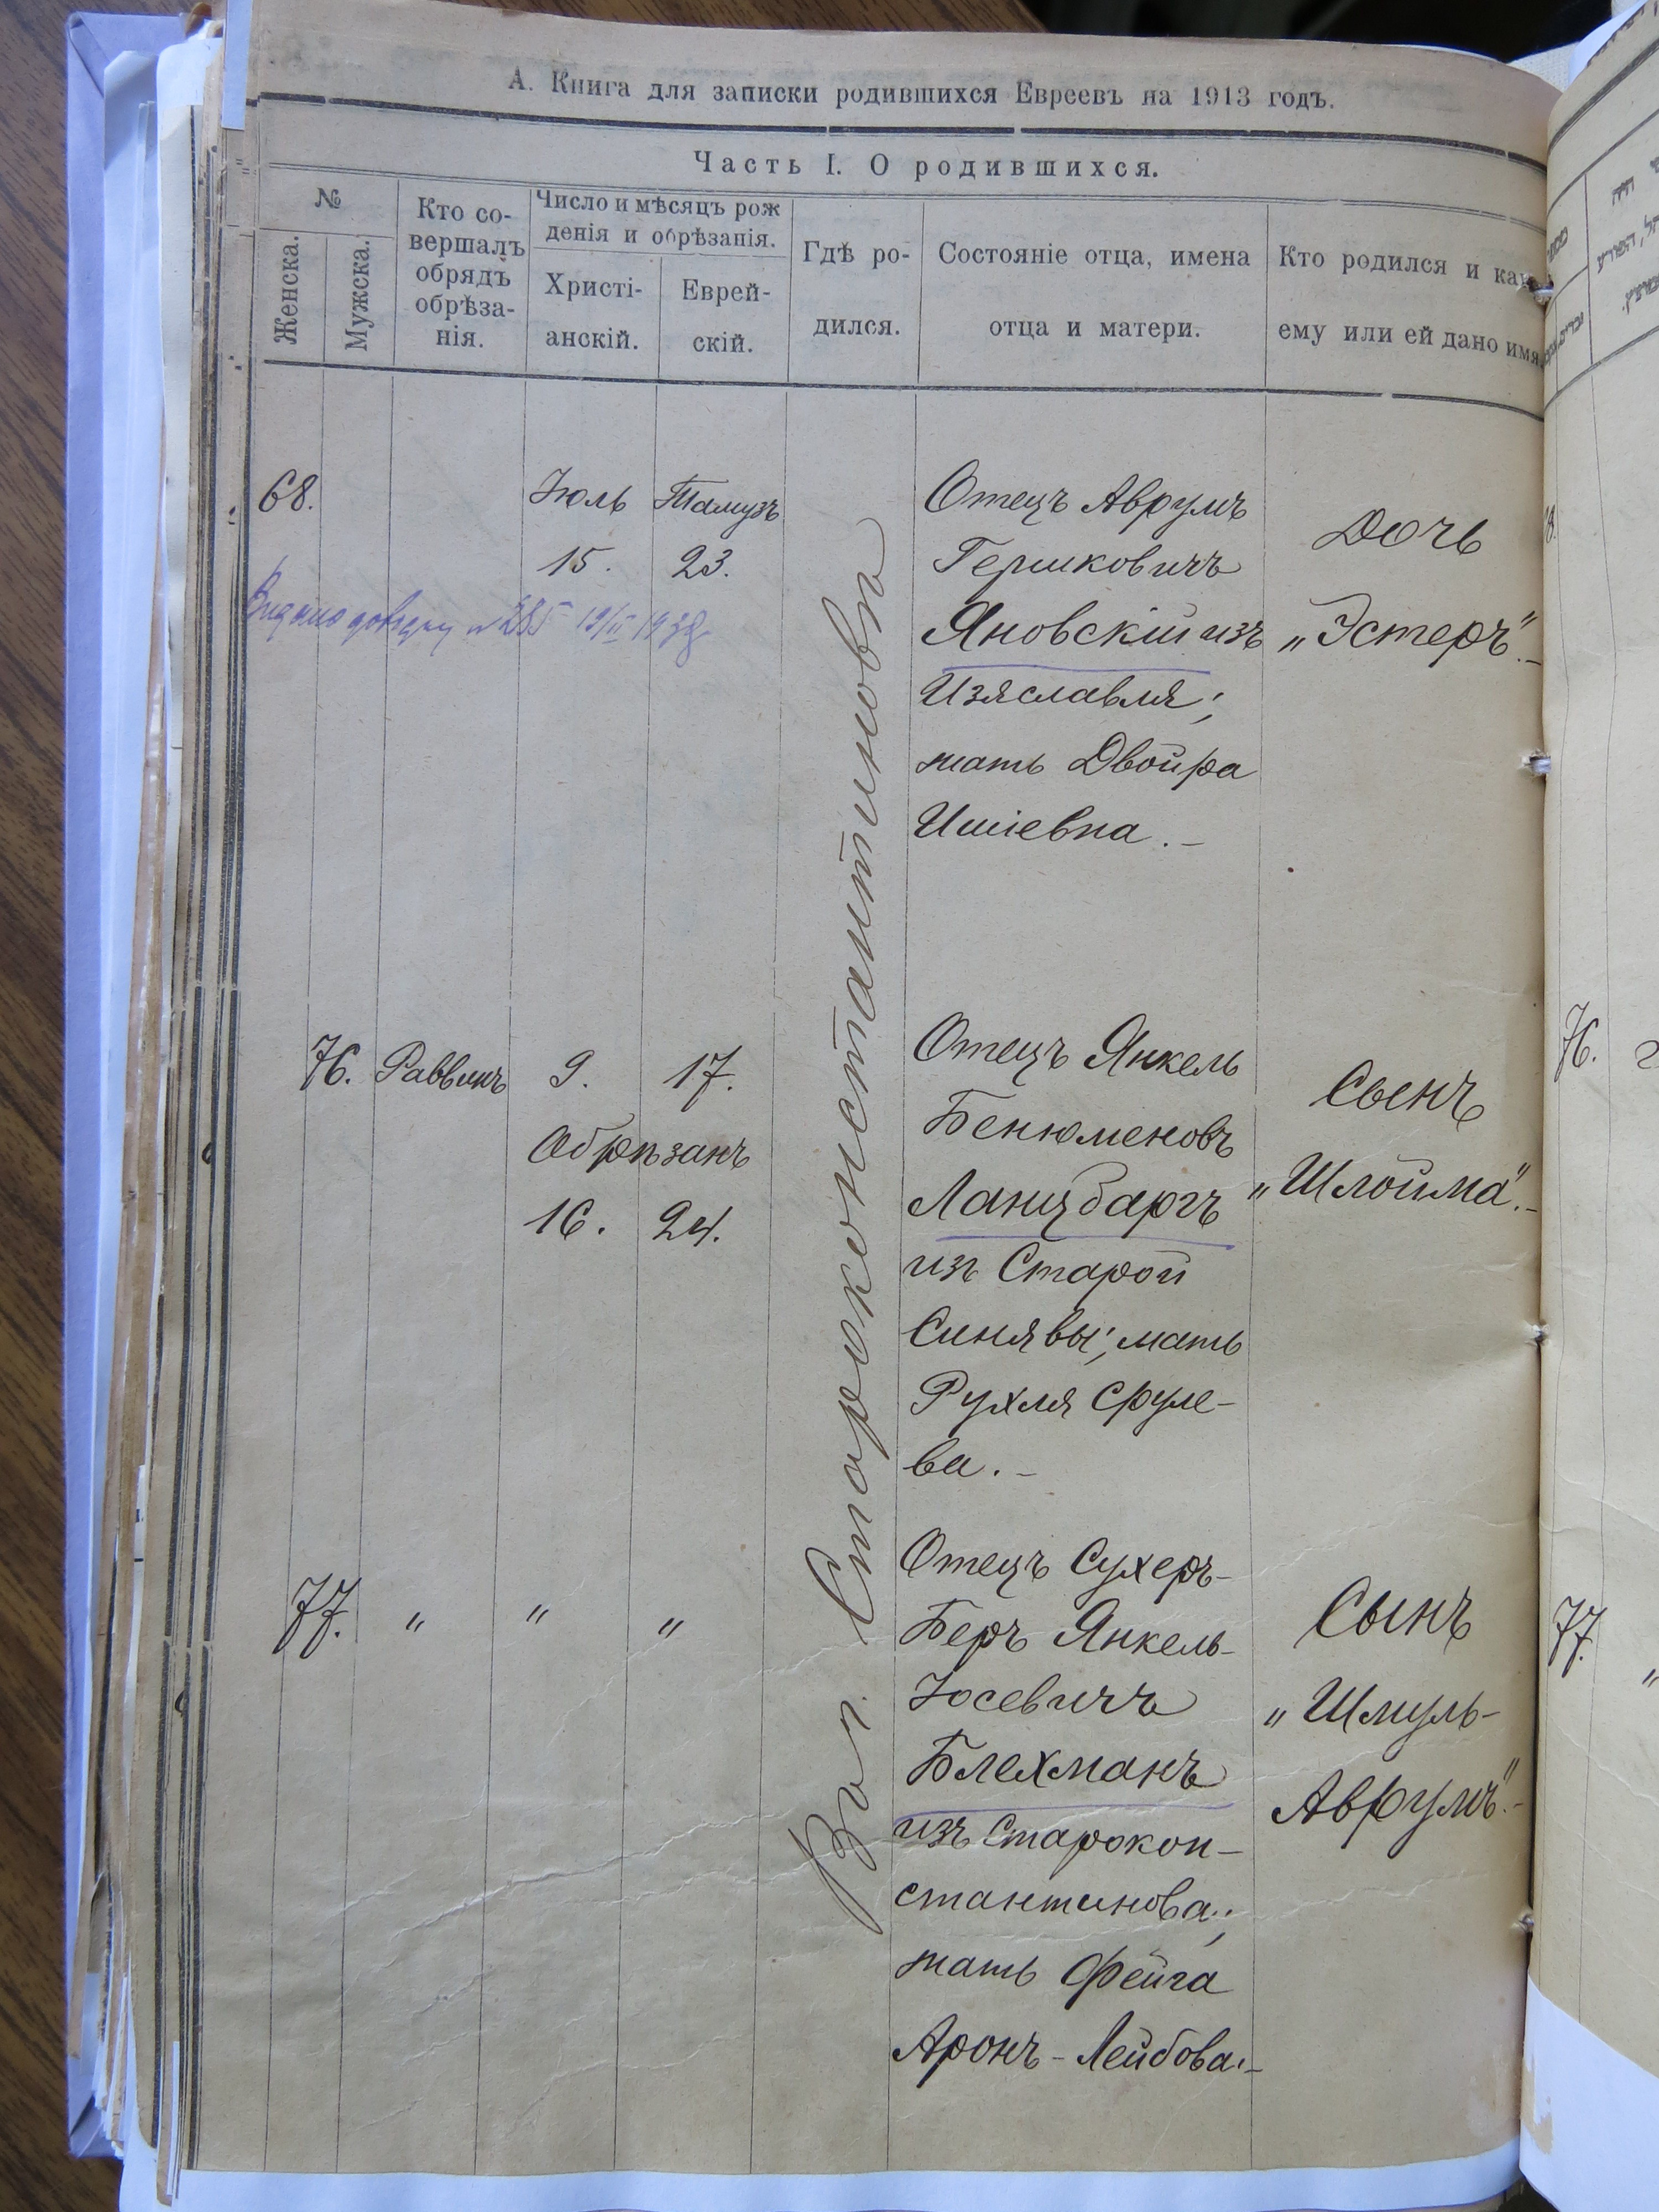 А. Книга для записки родившихся Евреевъ на 1913 годъ.
Часть I. О родившихся.
№
Женска.
Мужска.
Кто со-
вершалъ
обрядъ
обрѣза-
нія.
Число и мѣсяцъ рож
денія и обрѣзанія.
Христі-
анскій.
Еврей-
скій.
Гдѣ ро-
дился.
Состояніе отца, имена
отца и матери.
Кто родился и как
ему или ей дано имя
68.
Іюль
15.
Тамузъ
23.
№ 285 19/II 1938
Въ г. Староконстантиновѣ
Отецъ Аврумъ
Гершковичъ
Яновскій изъ
Изяславля;
мать Двойра
Ишіевна.–
Дочь
„Эстеръ".–
76.
Раввинъ
9.
17.
Обрѣзанъ
16.
24.
Отецъ Янкель
Бенюменовъ
Ланцбаргъ
изъ Старой
Синявы; мать
Рухля Сруле-
ва.–
Сынъ
„Шлойма".–
77.
"
"
"
Отецъ Сухеръ-
Беръ Янкель-
Іосевичъ
Блехманъ
изъ Старокон-
стантинова;
мать Фейга
Аронъ-Лейбова.–
Сынъ
„Шмуль-
Аврумъ".–
76.
77.
"